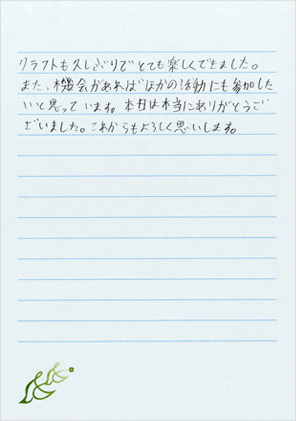 クラフトも久しぶりでとても楽しくできました。
また、機会があればほかの活動にも参加した
いと思っています。本日は本当にありがとうご
ざいました。これからもよろしく思いします。